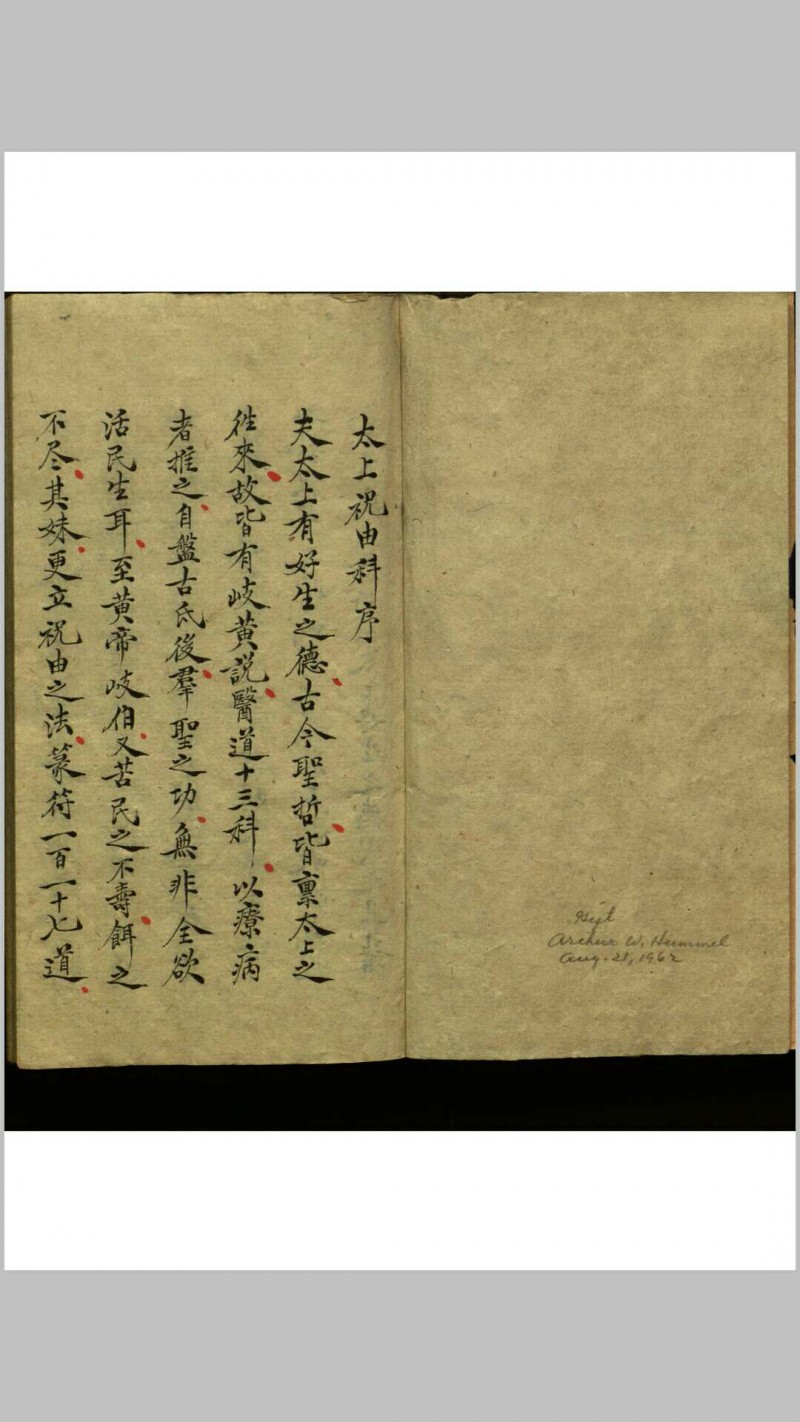 太上祝由科序
夫太上有好生之德古今聖哲皆禀太上之
徃來故皆有岐黄説醫道十三科以療病
者推之自盤古氏後羣聖之功無非全欲
活民生耳至黄帝岐伯又苦民之不壽餌之
不尽其妹更立祝由之法篆符一百一十七道
Gift
Arthur W. Hummel
Aug. 21, 1962